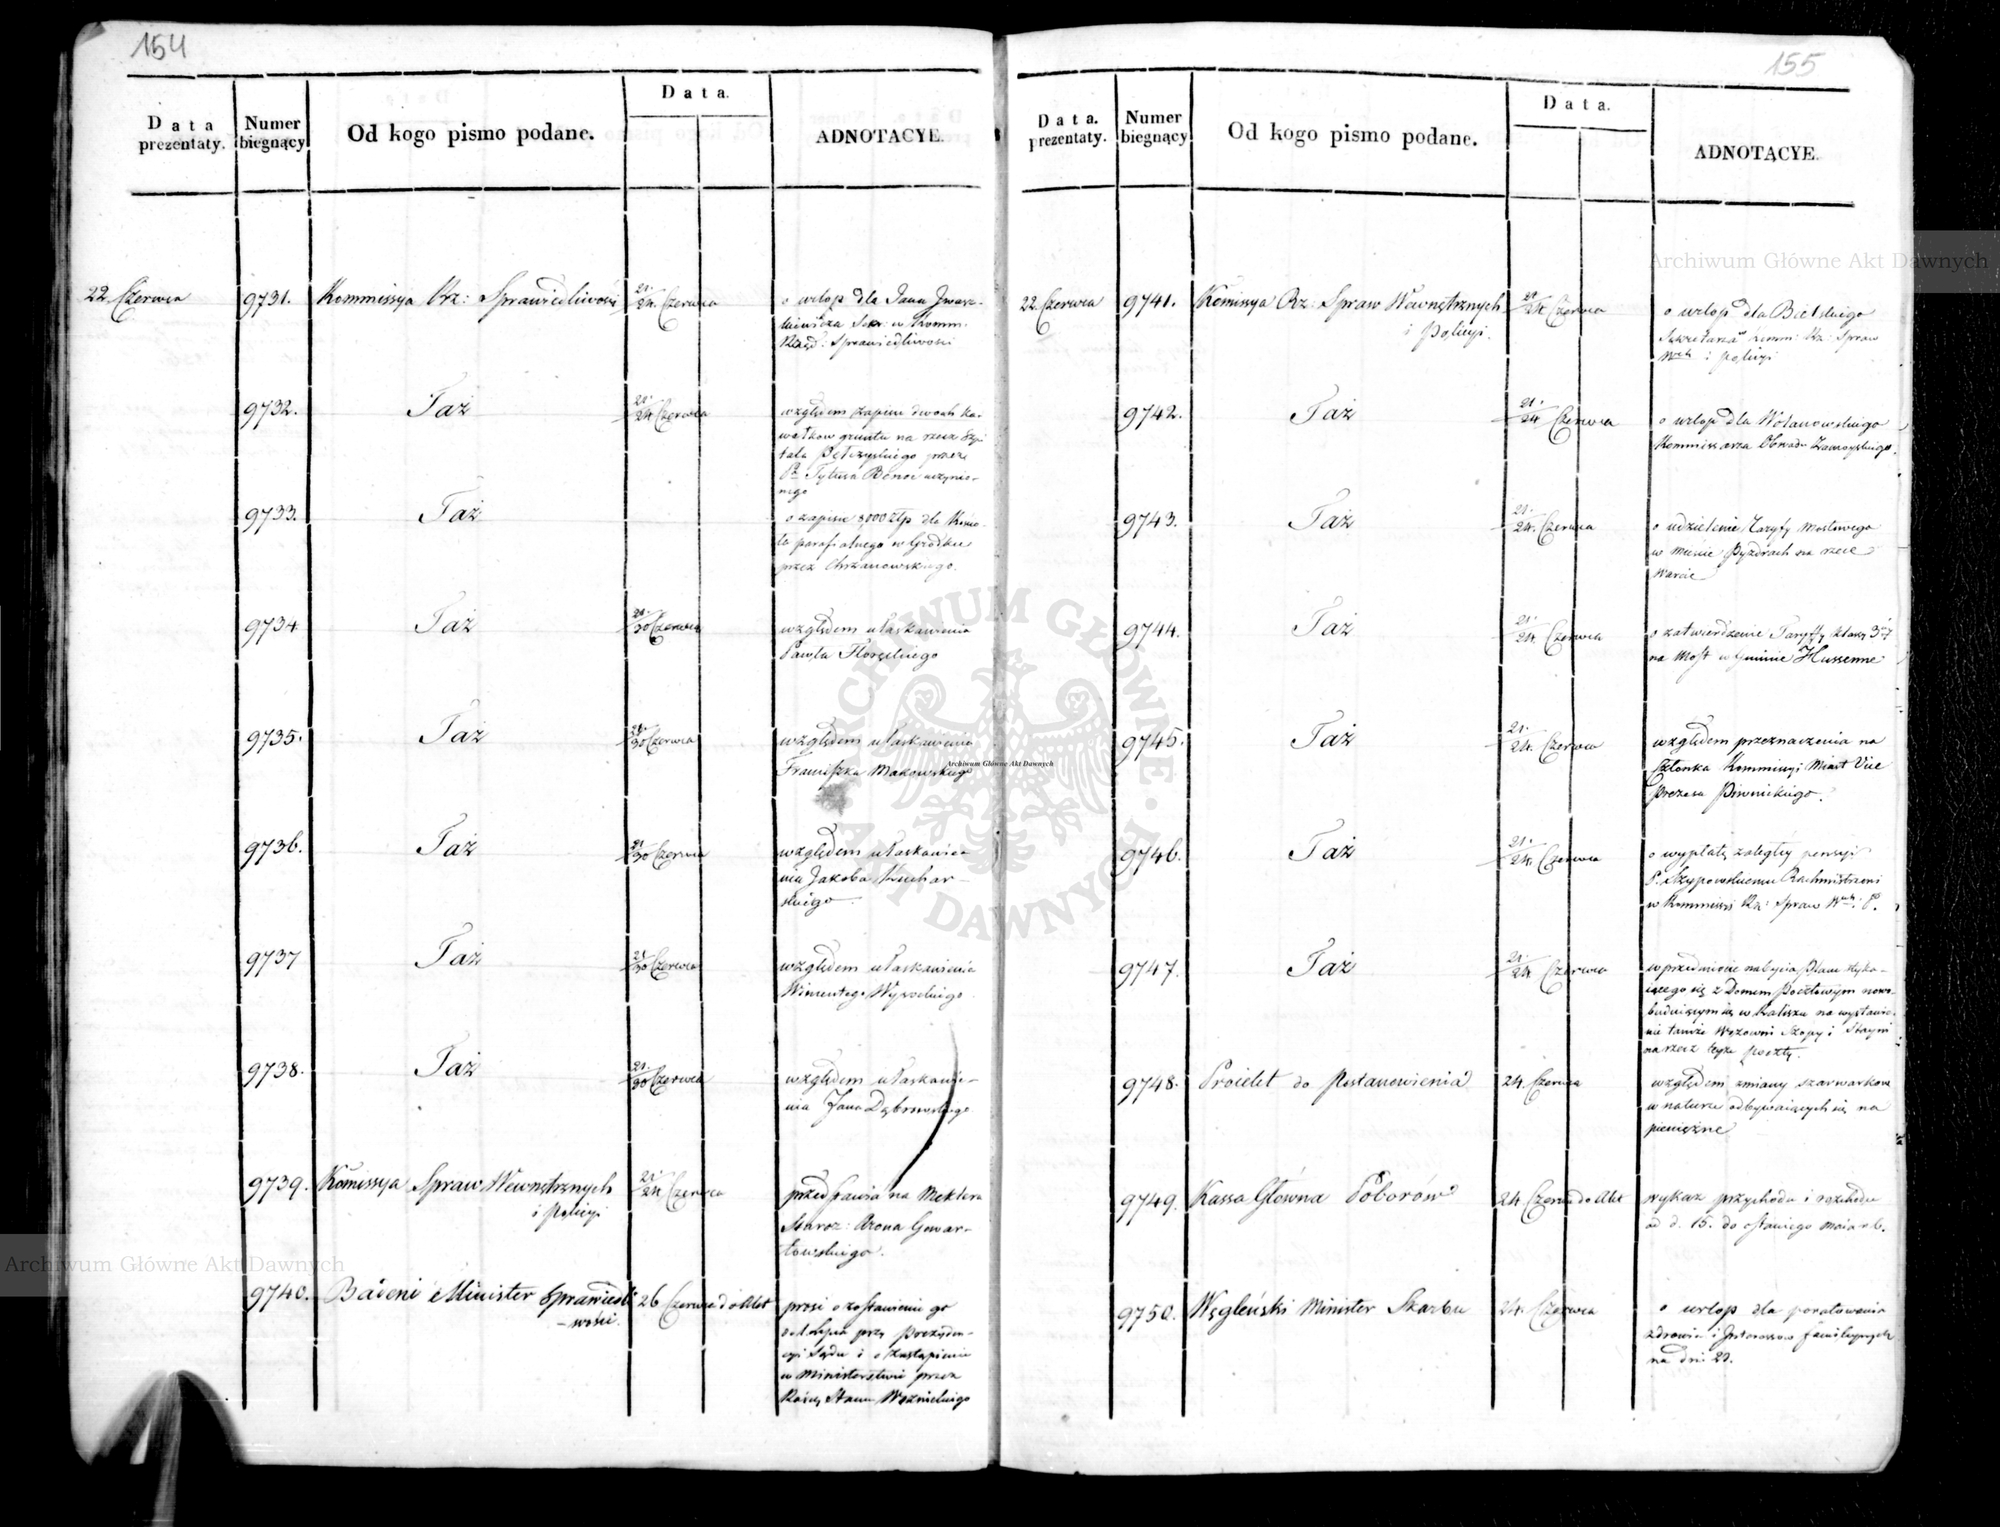 154
Data prezentaty.
Numer biegnący
Od kogo pismo podane.
Data.
ADNOTACYE.
22 Czerwca
9731.
Kommissya Rz: Sprawiedliwości
21/24. Czerwca
o urlop dla Jana Iwasz-
kiewicza Sekr: w Komm:
Rząd: Sprawiedliwości
9732.
Taż
21/24 Czerwca
względem zapisu dwóch ka-
wałków gruntu na rzecz Szpi
tala przez
Pa Tytusa uczynio-
nego
9733.
Taż
o zapisu 3,000 Złp dla Kościo
ła parafialnego w Gródku
przez Chrzanowskiego.
9734
Taż
21/30 Czerwca
względem ułaskawienia
Pawła
9735.
Taż
21/30 Czerwca
względem ułaskawienia
Franciszka Makowskiego
9736.
Taż
21/30 Czerwca
względem ułaskawie
nia Jakóba Kuchar-
skiego.
9737
Taż
21/30 Czerwca
względem ułaskawienia
Wincentego Wysockiego.
9738.
Taż
21/30 Czerwca
względem ułaskawie-
nia Jana Dąbrowskiego
9739.
Kommissya Spraw Wewnętrznych
i Policyi
21/24 Czerwca
przedstawia na Meklera
Staroz: Arona Gewar-
towskiego.
9740.
Badeni Minister Sprawiedli
-wości.
26 Czerwca do Akt
prosi o zostawienie go
od 1. Lipca przy Prezyden-
cyi Sądu i o zastąpienie
w Ministerstwie przez
Radcę Stanu Woźnickiego
155
Data. prezentaty.
Numer biegnący
Od kogo pismo podane.
Data.
ADNOTACYE.
22. Czerwca
9741.
Kommissya Rz: Spraw Wewnętrznych
i Policyi.
21/24 Czerwca
o urlop dla Bielskiego
Sekretarza Komm: Rz: Spraw
Wch i Policyi
9742.
Taż
21./24 Czerwca
o urlop dla Wolanowskiego
Kommissarza Obwodu Zamoyskiego.
9743.
Taż
21./24. Czerwca
o udzielenie Taryfy mostowego
w mieście Pyzdrach na rzece
Warcie
9744.
Taż
21./24. Czerwca
o zatwierdzenie Taryffy klassy 3ey
na Most w Gminie Hussenne
9745.
Taż
21./24. Czerwca
względem przeznaczenia na
Członka Kommissyi Miast Vice
Prezesa Piwnickiego.
9746.
Taż
21./24. Czerwca
o wypłatę zaległey pensyi
P. Szypowskiemu Rachmistrzowi
w Kommissyi Rz: Spraw Wch: P.
9747.
Taż
21./24 Czerwca
w przedmiocie nabycia Placu styka-
iącego się z Domem Pocztowym nowo
buduiącym się w Kaliszu na wystawie-
nie tamże Wozowni Szopy i Stayni
na rzecz teyże poczty.
9748.
Proiekt do Postanowienia
24. Czerwca
względem zmiany szarwarków
w naturze odbywaiących się na
pieniężne
9749.
Kassa Główna Poborów
24 Czerwca do Akt
wykaz przychodu i rozchodu
od d. 15. do ostatniego maia r.b.
9750.
Węgleński Minister Skarbu
24. Czerwca
o urlop dla poratowania
zdrowia i Interessów familiynych
na dni 29.
Archiwum Główne Akt Dawnych
Archiwum Główne Akt Dawnych
Archiwum Główne Akt Dawnych
ARCHIWUM GŁÓWNE AKT DAWNYCH